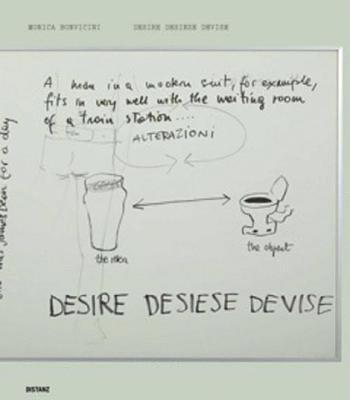 MONICA BONVICINI DESIRE DESIESE DEVISE
A man in a modern suit, for example,
fits in very well with the waiting room
of a train station....
ALTERAZIONI
the man
the object
DESIRE DESIESE DEVISE
for a day
DISTANZ